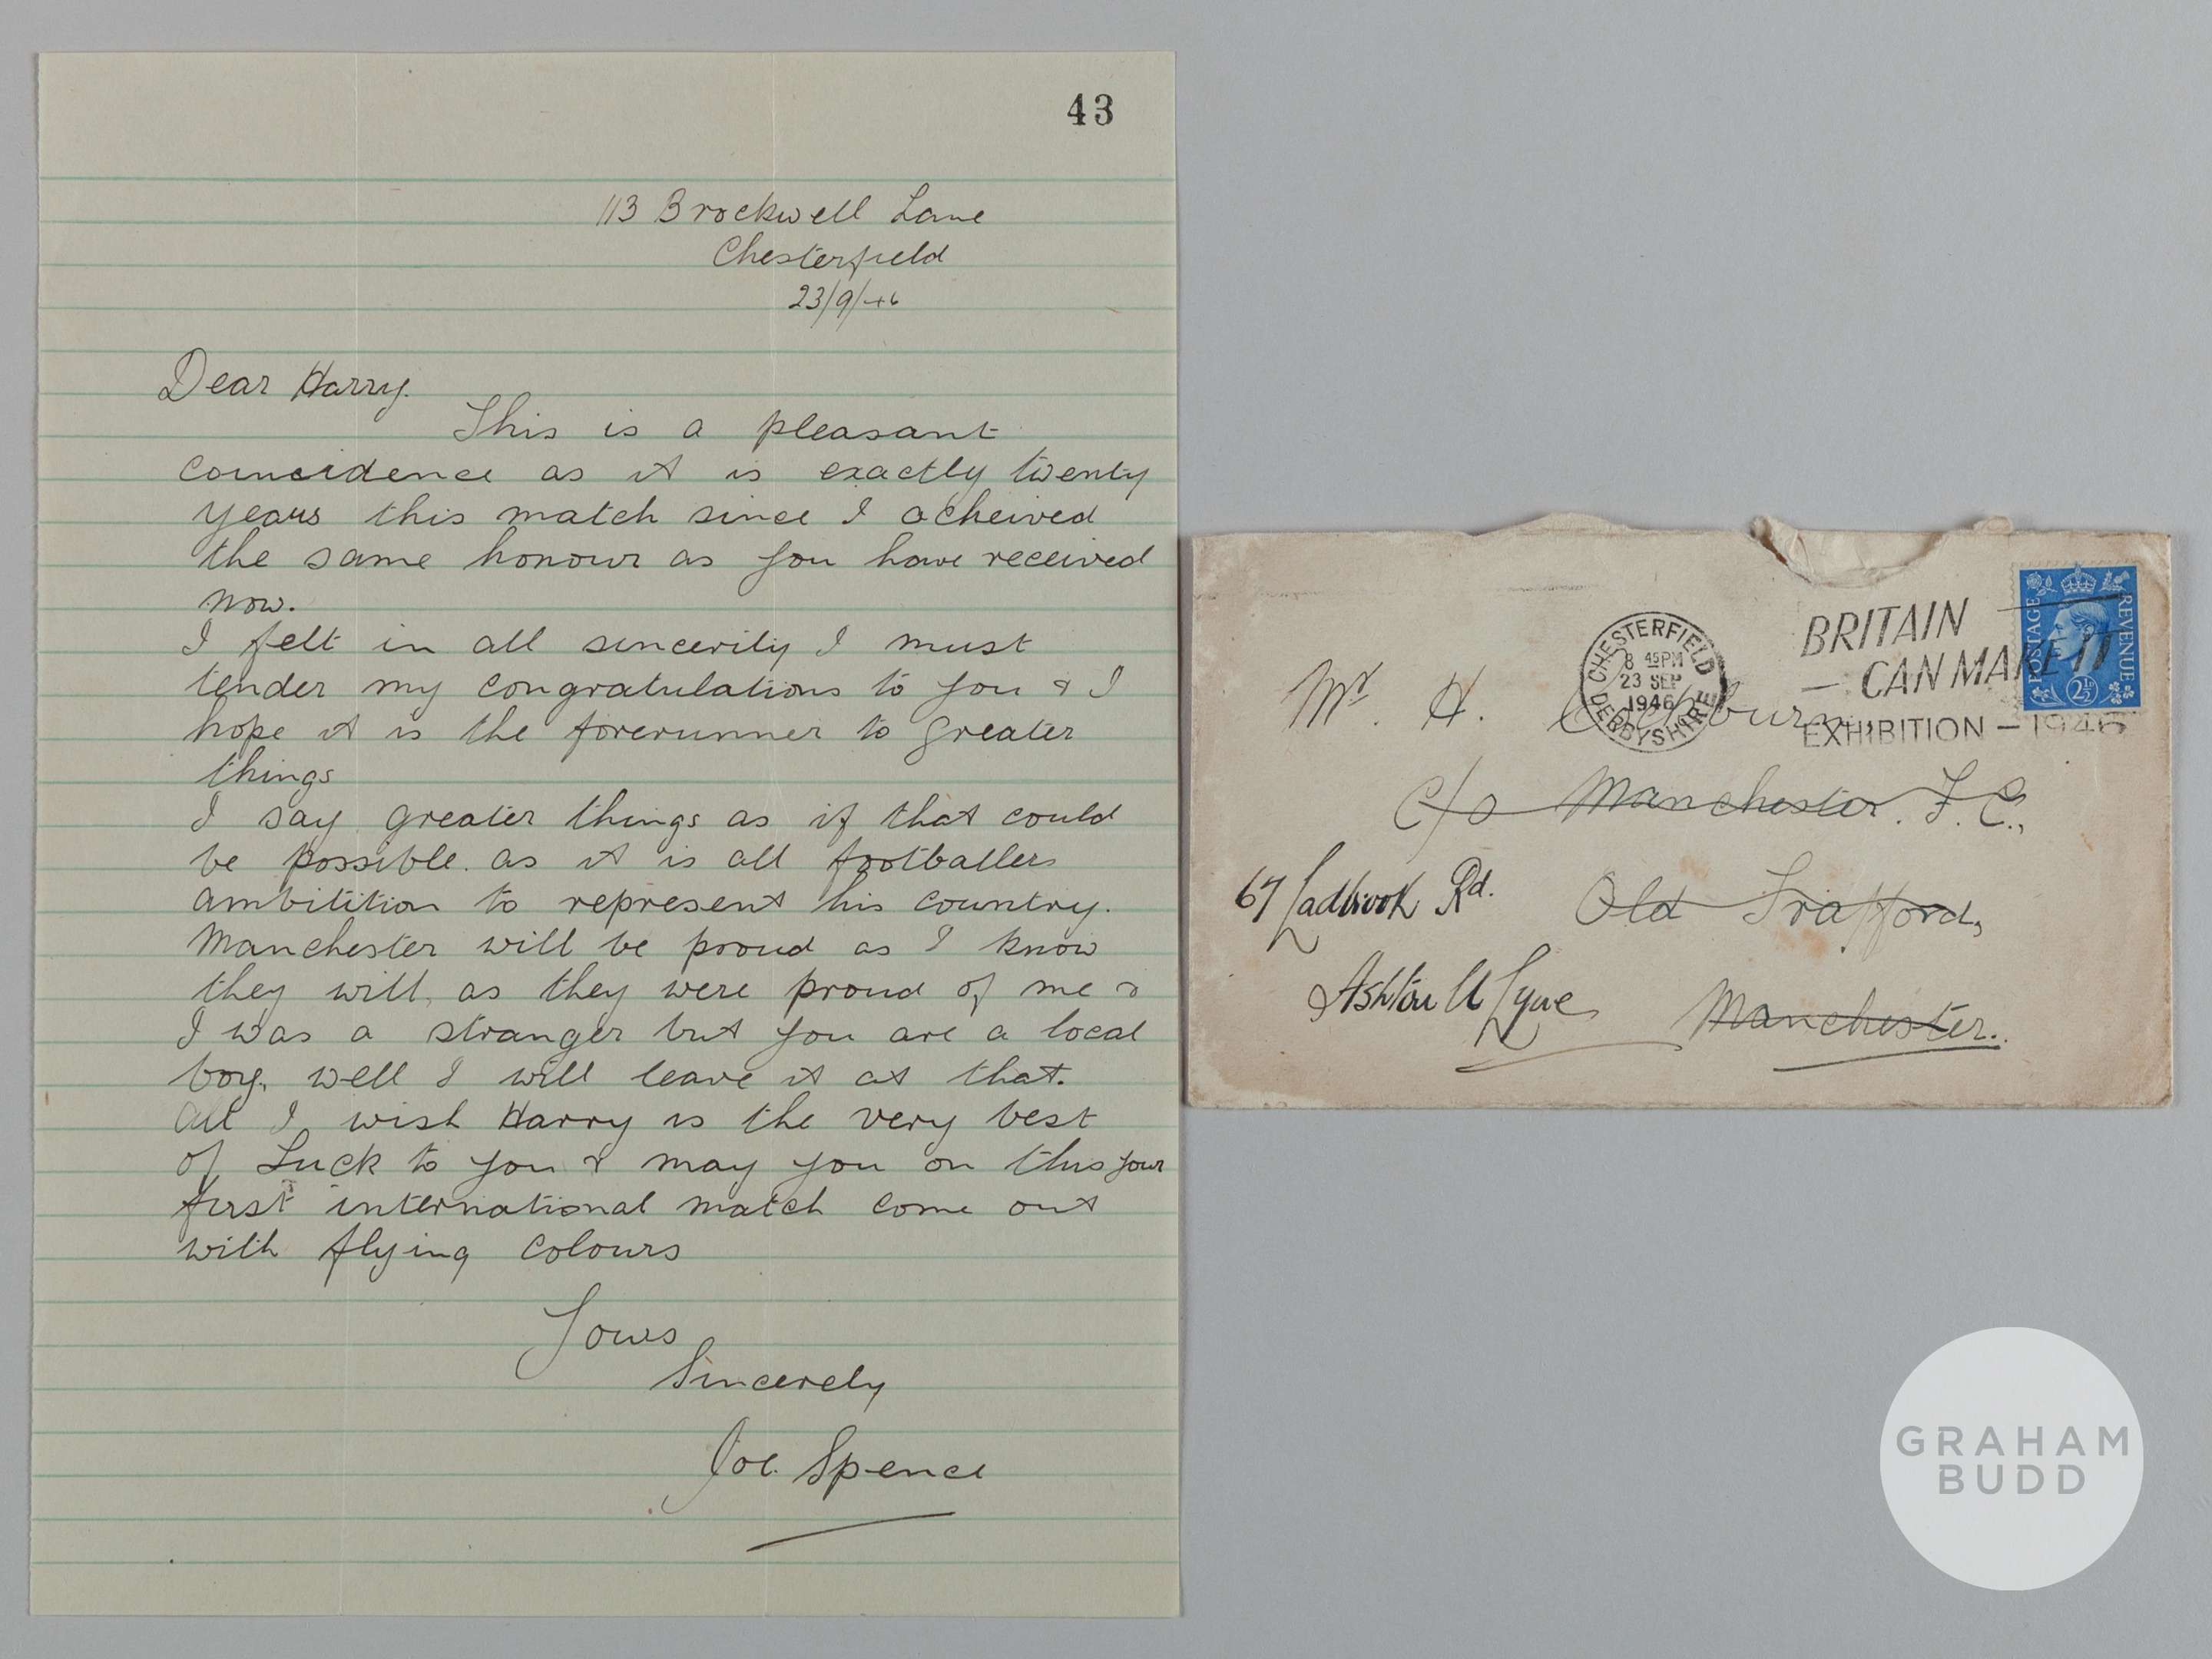 43
113 Brockwell Lane
Chesterfield
23/9/46
Dear Harry.
This is a pleasant
coincidence as it is exactly twenty
years this match since I acheived
the same honour as you have received
now.
I felt in all sincerity I must
tender my congratulations to you & I
hope it is the forerunner to greater
things
I say greater things as if that could
be possible. as it is all footballers
ambitition to represent his country.
Manchester will be proud as I know
they will, as they were proud of me &
I was a stranger but you are a local
boy, well I will leave it at that.
All I wish Harry is the very best
of Luck to you & may you on this your
first international match come out
with flying colours
Yours
Sincerely
Joe. Spence
CHESTERFIELD
8 45 PM
23 SEP
1946
DERBYSHIRE
BRITAIN
CAN MAKE IT
EXHIBITION - 1946
POSTAGE
REVENUE
2½D
Mr. H. Cockburn,
c/o Manchester. F.C.,
67 Ladbrook Rd.
Old Trafford,
Ashton U Lyne
Manchester.
GRAHAM
BUDD